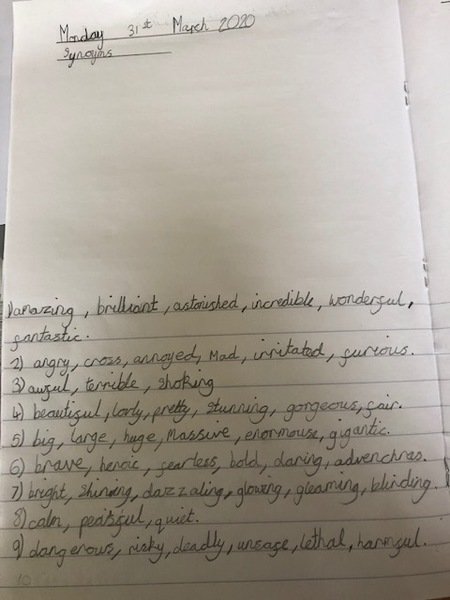 Monday 31st March 2020
Synoyms
1) amazing, brilliant, astonished, incredible, wonderful,
fantastic.
2) angry, cross, annoyed, Mad, irritated, furious.
3) awful, terrible, shoking
4) beautiful, lovly, pretty, stunning, gorgeous, fair.
5) big, large, huge, Massive, enormouse, gigantic.
6) brave, heroic, fearless, bold, daring, advenchras.
7) bright, Shining, dazzaling, glowing, gleaming, blinding.
8) calm, peacful, quiet.
9) dangerous, risky, deadly, unsafe, lethal, harmful.
10